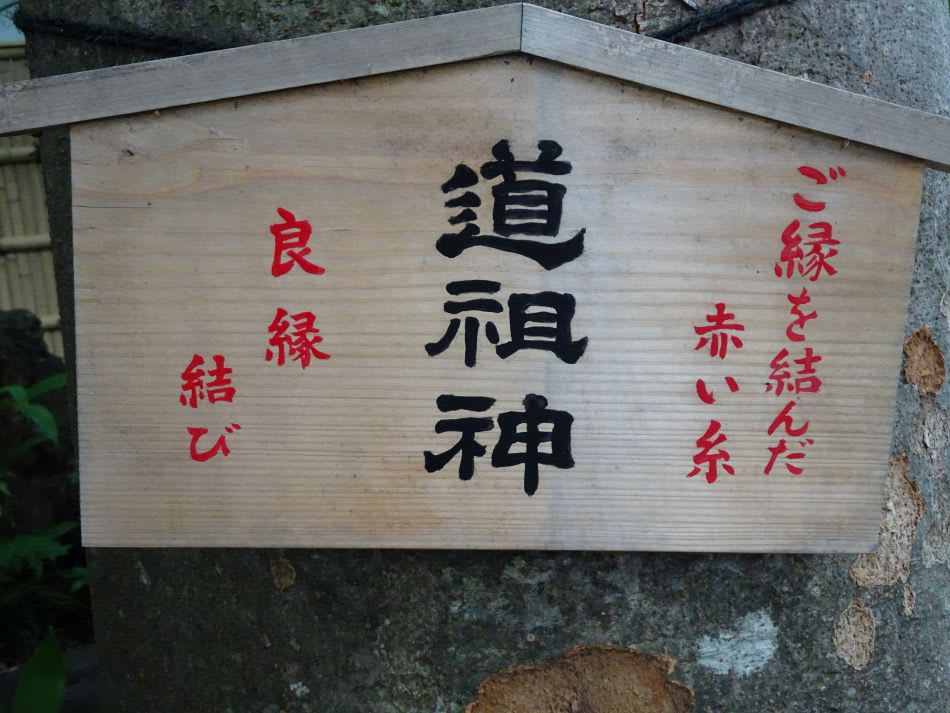 ご縁を結んだ
赤い糸
道祖神
良縁
結び